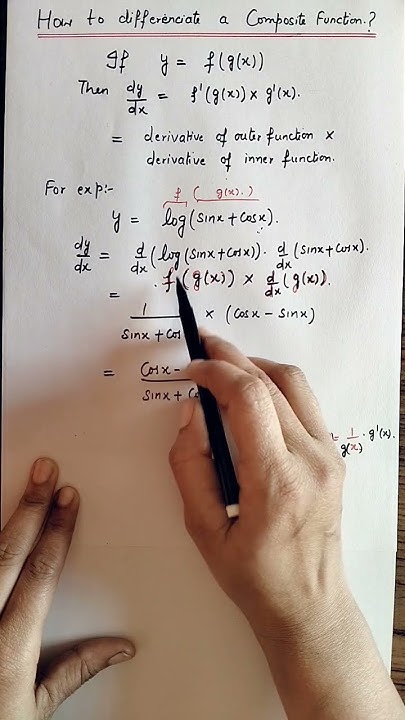 How to differenciate a Composite Function.?
If y = f(g(x))
Then dy/dx = f'(g(x)) × g'(x).
= derivative of outer function ×
derivative of inner function.
For exp:- f ( g(x).)
y = log(sinx + cosx).
dy/dx = d/dx (log(sinx + cosx)). d/dx (sinx + cosx).
. f'(g(x)) × d/dx (g(x)).
= 1/sinx + cos × (cosx - sinx)
= cosx - / sinx +
= 1/g(x) . g'(x).